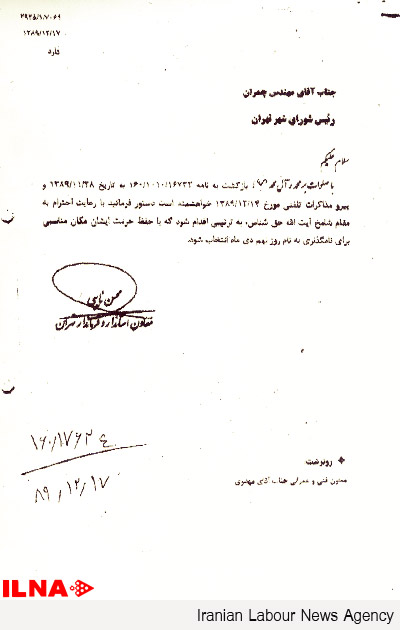 ۲۹۲۵/۱/۷۰۶۹
۱۳۸۹/۱۲/۱۷
دارد
جناب آقای مهندس چمران
رئیس شورای شهر تهران
سلام علیکم
با صلوات بر محمد و آل محمد (ص)، بازگشت به نامه ۱۶۰/۱۰۱۰/۱۶۷۳۲ به تاریخ ۱۳۸۹/۱۱/۲۸ و
پیرو مذاکرات تلفنی مورخ ۱۳۸۹/۱۲/۱۴ خواهشمند است دستور فرمائید با رعایت احترام به
مقام شامخ آیت الله حق شناس، به ترتیبی اقدام شود که با حفظ حرمت ایشان مکان مناسبی
برای نامگذاری به نام روز نهم دی ماه انتخاب شود.
محسن نایبی
معاون استاندار و فرماندار تهران
۱۶۰/۱۷۶۲۴
۸۹/۱۲/۱۷
رونوشت
معاون فنی و عمرانی جناب آقای مهدوی
ILNA
Iranian Labour News Agency